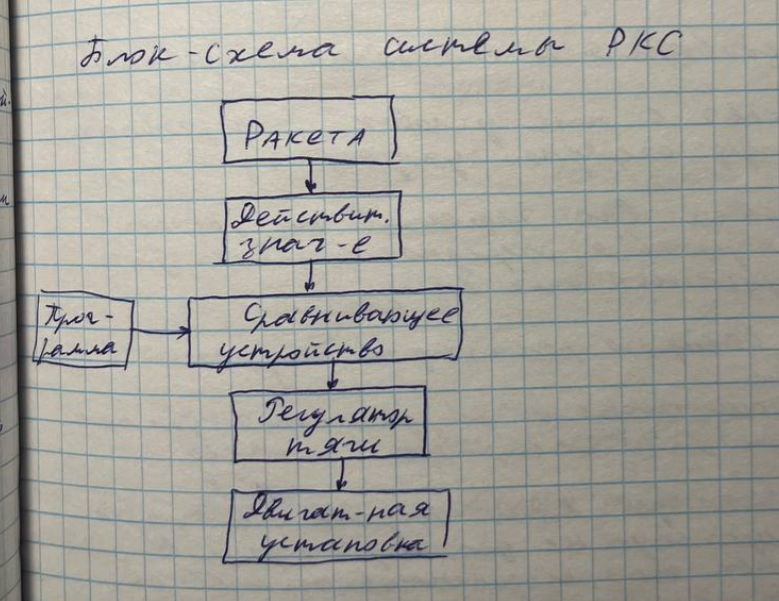 Блок-схема системы РКС
Ракета
Действит.
знач-е
Прог-
рамма
Сравнивающее
устройство
Регулятор
тяги
Двигат-ная
установка